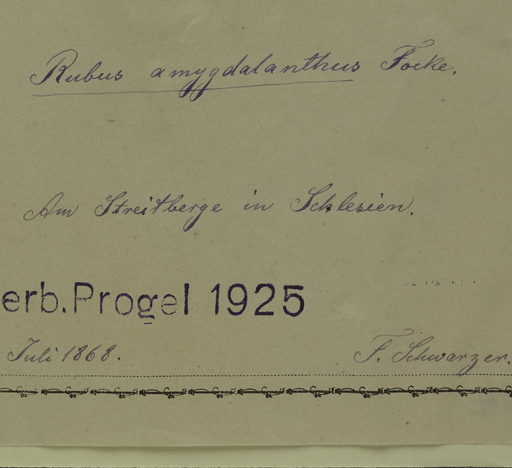 Rubus amygdalanthus Focke.
Am Streitberge in Schlesien.
erb. Progel 1925
Juli 1868. F. Schwarzer.